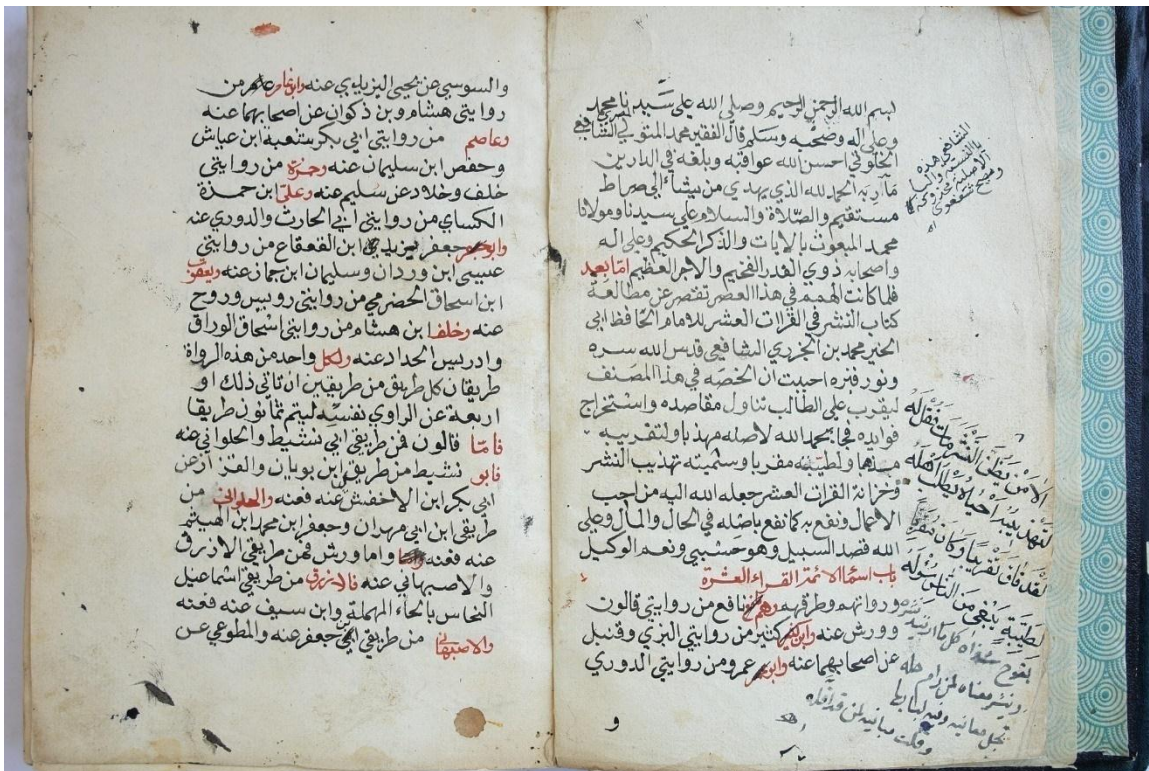 لبسم الله الرحمن الرحيم وصلى الله على سيدنا محمد
وعلى اله وصحبه وسلم قال الفقير محمد المتولي الشافعي
الخلوتي احسن الله عواقبه وبلغه في الدارين
مآربه الحمد لله الذي يهدي من يشاء الى صراط
مستقيم والصلاة والسلام على سيدنا ومولانا
محمد المبعوث بالايات والذكر الحكيم وعلى اله
واصحابه ذوي القدر الفخيم والاجر العظيم امّا بعد
فلما كانت الهمم في هذا العصر تقتصر عن مطالعة
كتاب النشر في القراات العشر للامام الحافظ ابي
الخير محمد بن الجزري الشافعي قدس الله سره
ونور قبره احببت ان الخصه في هذا المصنف
ليقرب على الطالب تناول مقاصده واستخراج
فوايده فجا بحمد الله لاصله مهذبا ولتقريبه
ولطيبته مقربا وسميته تهذيب النشر
وخزانة القراات العشر جعله الله اليه من احب
الاعمال ونفع به كما نفع باصله في الحال والمآل وعلى
الله قصد السبيل وهو حسبي ونعم الوكيل
باب اسما الائمة القراء العشرة
ورواتهم وطرقهم نافع من روايتي قالون
وورش عنه وابن كثير من روايتي البزي وقنبل
عن اصحابهما عنه وابو عمرو من روايتي الدوري
و
الشافعي هذه
الاصلية محذوفة
الا من يطق النشر مات فقل له
لقد فاق تقريبا وكان مقربا
لطيبة يبغي من الناس سوله
والسوسي عن يحيى اليزيدي عنه وابن عامر من
روايتي هشام وبن ذكوان عن اصحابهما عنه
وعاصم من روايتي ابي بكر شعبة ابن عياش
وحفص ابن سليمان عنه وحمزة من روايتي
خلف وخلاد عن سليم عنه وعلى ابن حمزة
الكساي من روايتي ابي الحارث والدوري عنه
وابو جعفر يزيد ابن القعقاع من روايتي
عيسى ابن وردان وسليمان ابن جماز عنه ويعقوب
ابن اسحاق الحضرمي من روايتي رويس وروح
عنه وخلف ابن هشام من روايتي اسحاق الوراق
وادريس الحداد عنه ولكل واحد من هذه الرواة
طريقان كل طريق من طريقين ان تاتي ذلك او
اربعة عن الراوي نفسه ليتم ثمانون طريقا
فامّا قالون فمن طريقي ابي نشيط والحلواني عنه
فابو نشيط من طريقي ابن بويان والقزاز عن
ابي بكر ابن الاخفش عنه فعنه والحلواني من
طريقي ابن ابي مهران وجعفر ابن محمد ابن الهيثم
عنه فعنه واما ورش فمن طريقي الازرق
والاصبهاني عنه فالازرق من طريقي اسماعيل
النخاس بالخاء المهملة وابن سيف عنه فعنه
والاصبهاني من طريقي ابن جعفر عنه والمطوعي عن